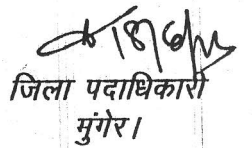 जिला पदाधिकारी
मुंगेर।